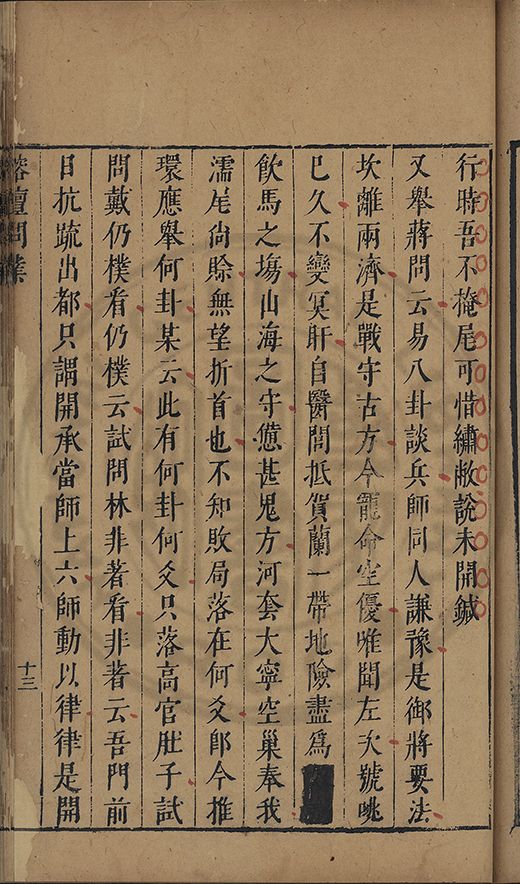 行時吾不掩尾可惜繡敝說未開鍼
又舉蔣問云易八卦談兵師同人謙豫是御將要法
坎離兩濟是戰守古方今寵命空優唯聞左次號咷
已久不變冥盱自醫問抵賀蘭一帶地險盡爲
飲馬之塲山海之守憊甚鬼方河套大寧空巢奉我
濡尾尙賒無望折首也不知敗局落在何爻郎今推
環應舉何卦某云此有何卦何爻只落高官肚子試
問戴仍樸看仍樸云試問林非著看非著云吾門前
日抗疏出都只謂開承當師上六師動以律律是開
榕壇問業
十三